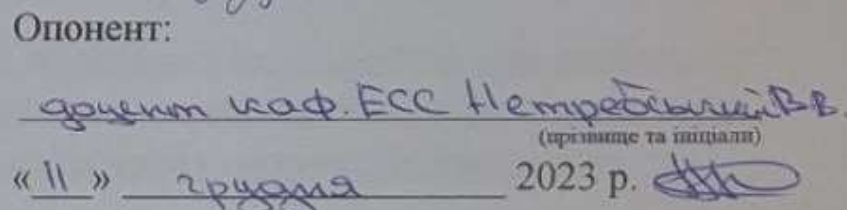 Опонент:
доцент каф. ЕСС Нетребський В В.
(прізвище та ініціали)
« 11 » грудня 2023 р.